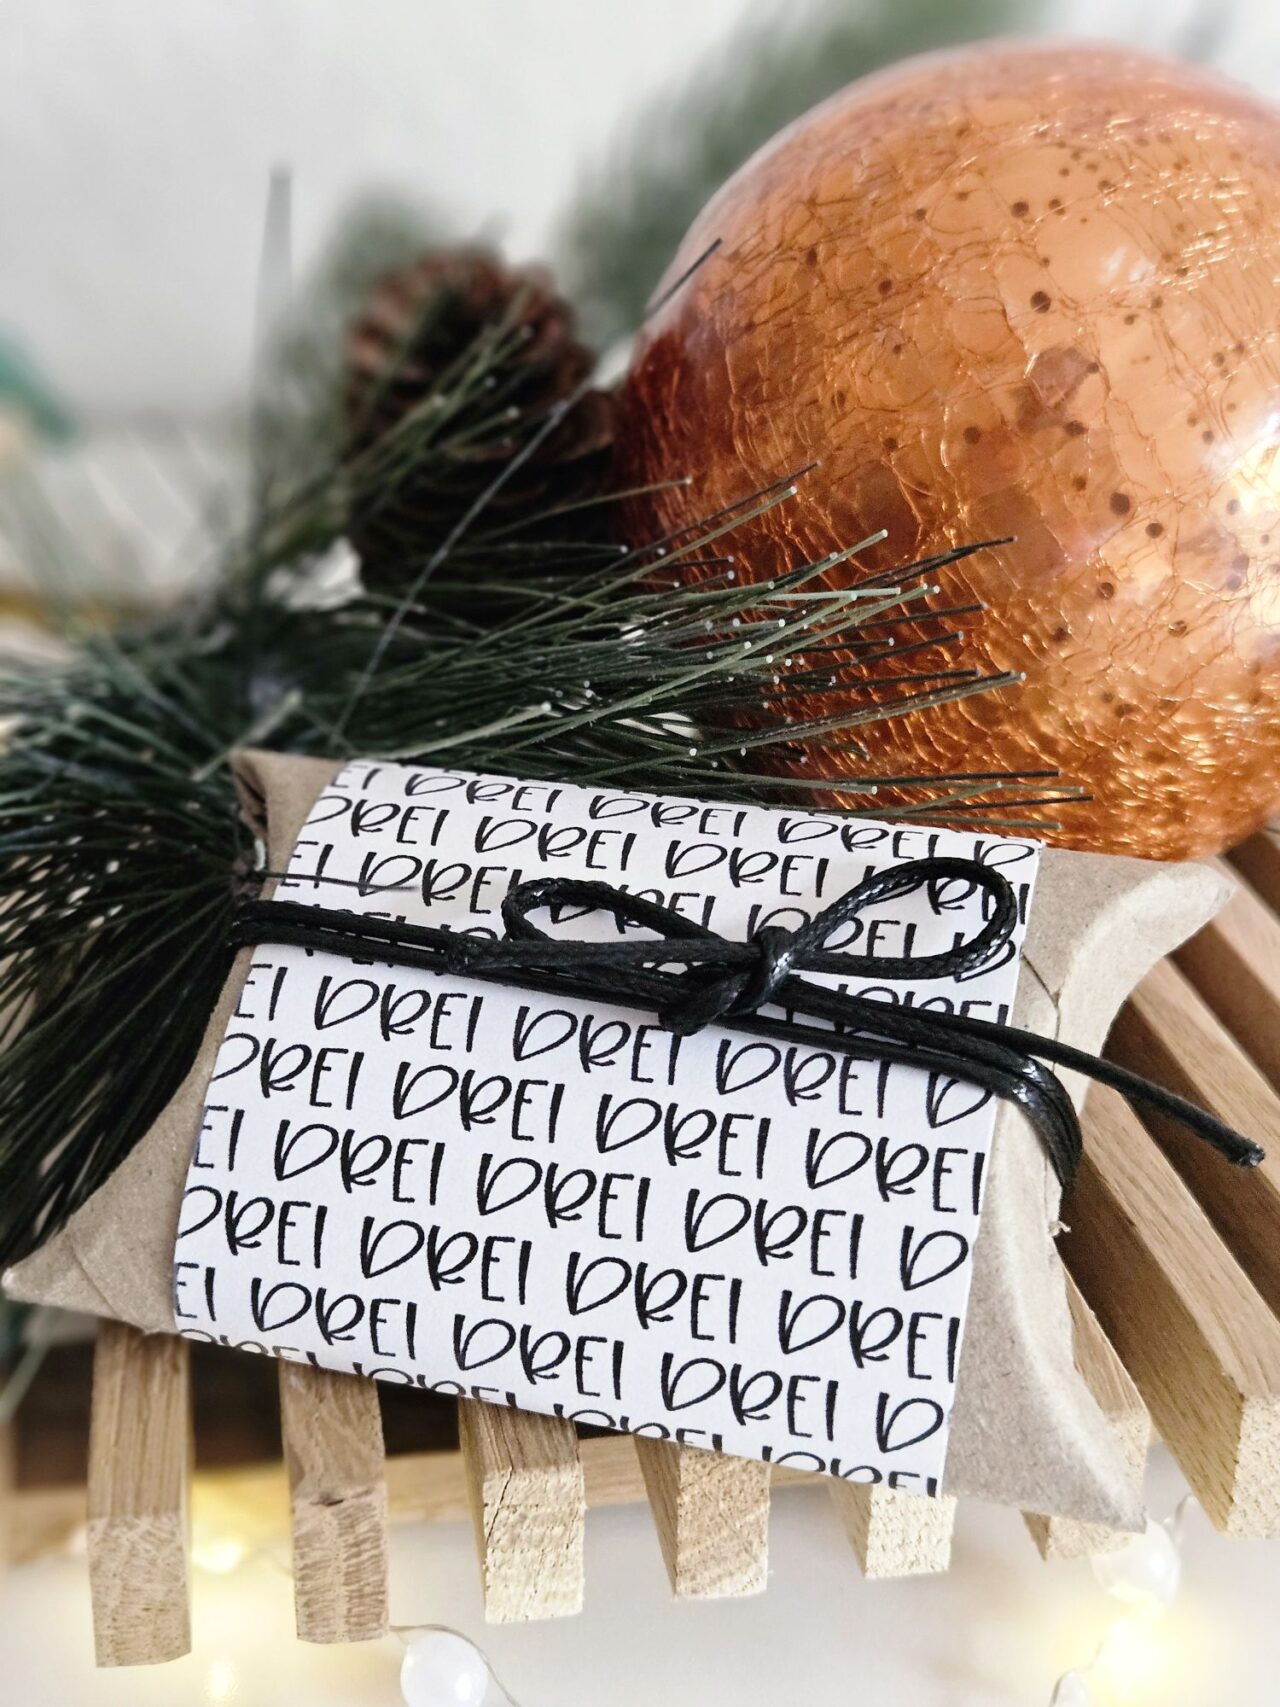 EI DREI DREI DREI D
DREI DREI DREI DREI
EI DREI DREI
DREI
EI DREI DREI DREI D
DREI DREI DREI DREI
EI DREI DREI DREI D
DREI DREI DREI DREI
EI DREI DREI DREI D
DREI DREI DREI DREI